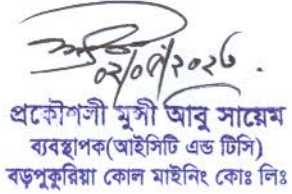 ০২/০৭/২০২৬
প্রকৌশলী মুন্সী আবু সায়েম
ব্যবস্থাপক(আইসিটি এন্ড টিসি)
বড়পুকুরিয়া কোল মাইনিং কোঃ লিঃ